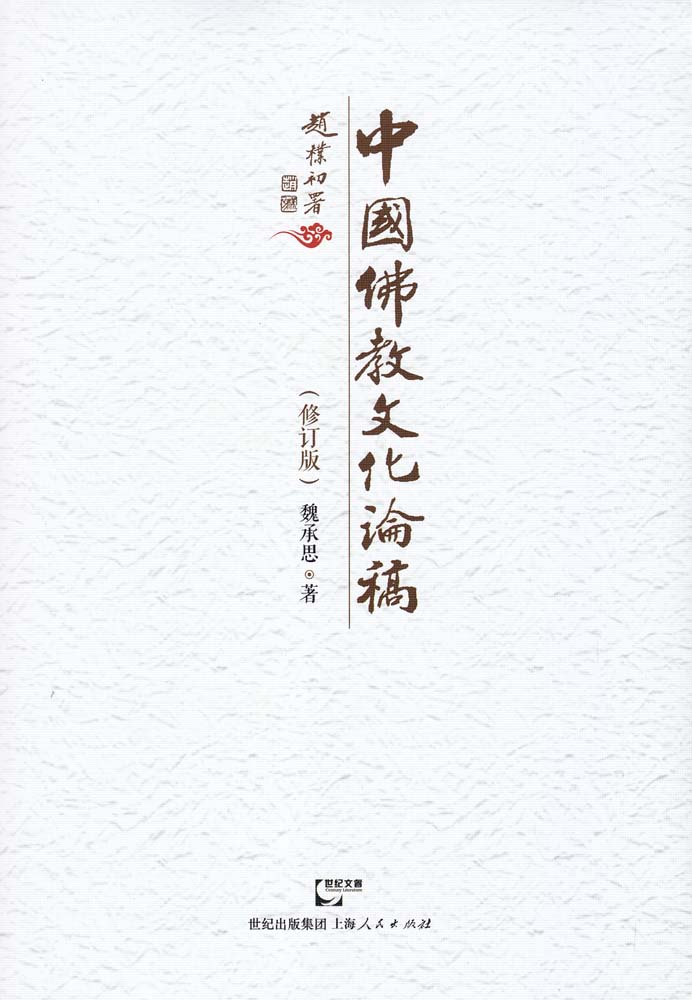 中國佛教文化論稿
趙樸初署
（修订版）
魏承思⊙著
世纪文睿
Century Literature
世纪出版集团 上海人民出版社